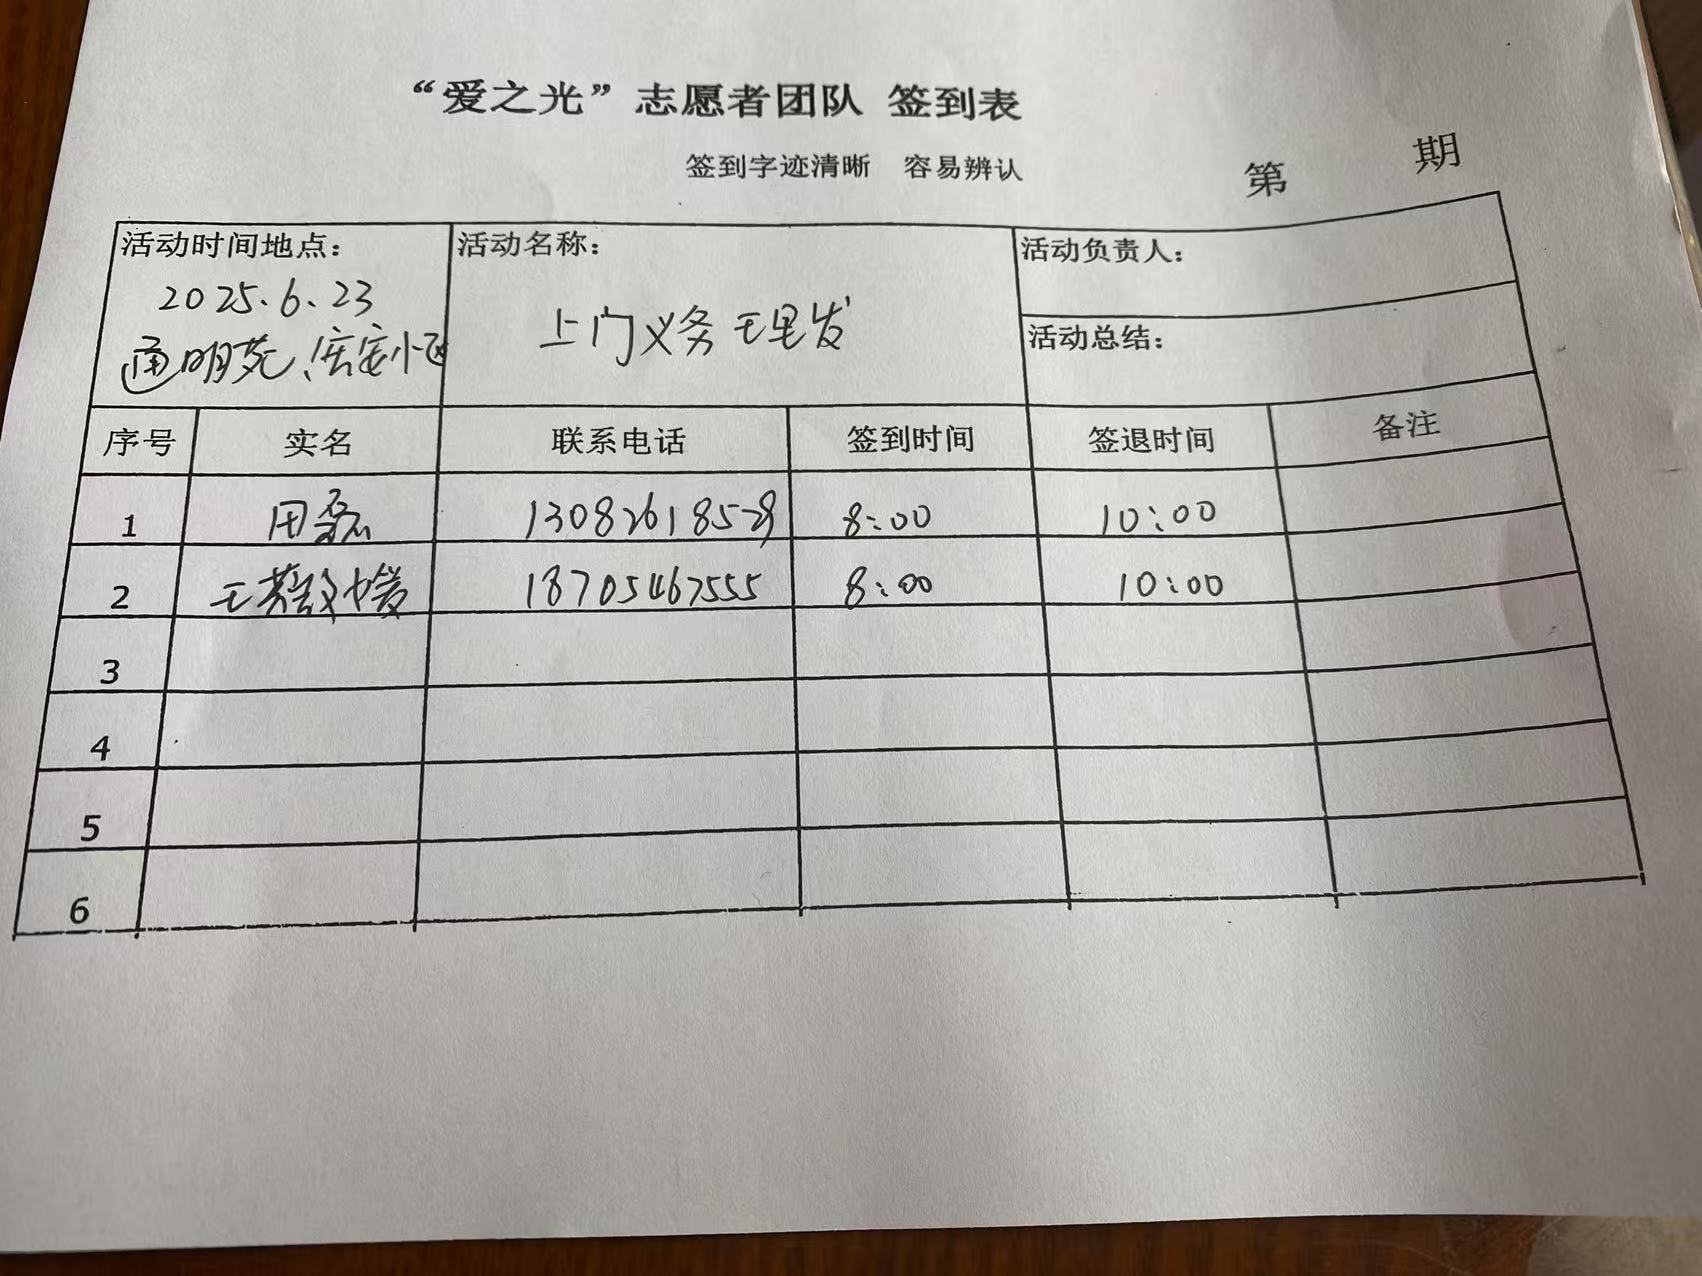 “爱之光”志愿者团队 签到表
签到字迹清晰 容易辨认
第 期
活动时间地点： 活动名称： 活动负责人：
2025.6.23
通明苑、宏安小区 上门义务理发
活动总结：
序号 实名 联系电话 签到时间 签退时间 备注
1 田磊 8:00 10:00
2 王 18705467555 8:00 10:00
3
4
5
6